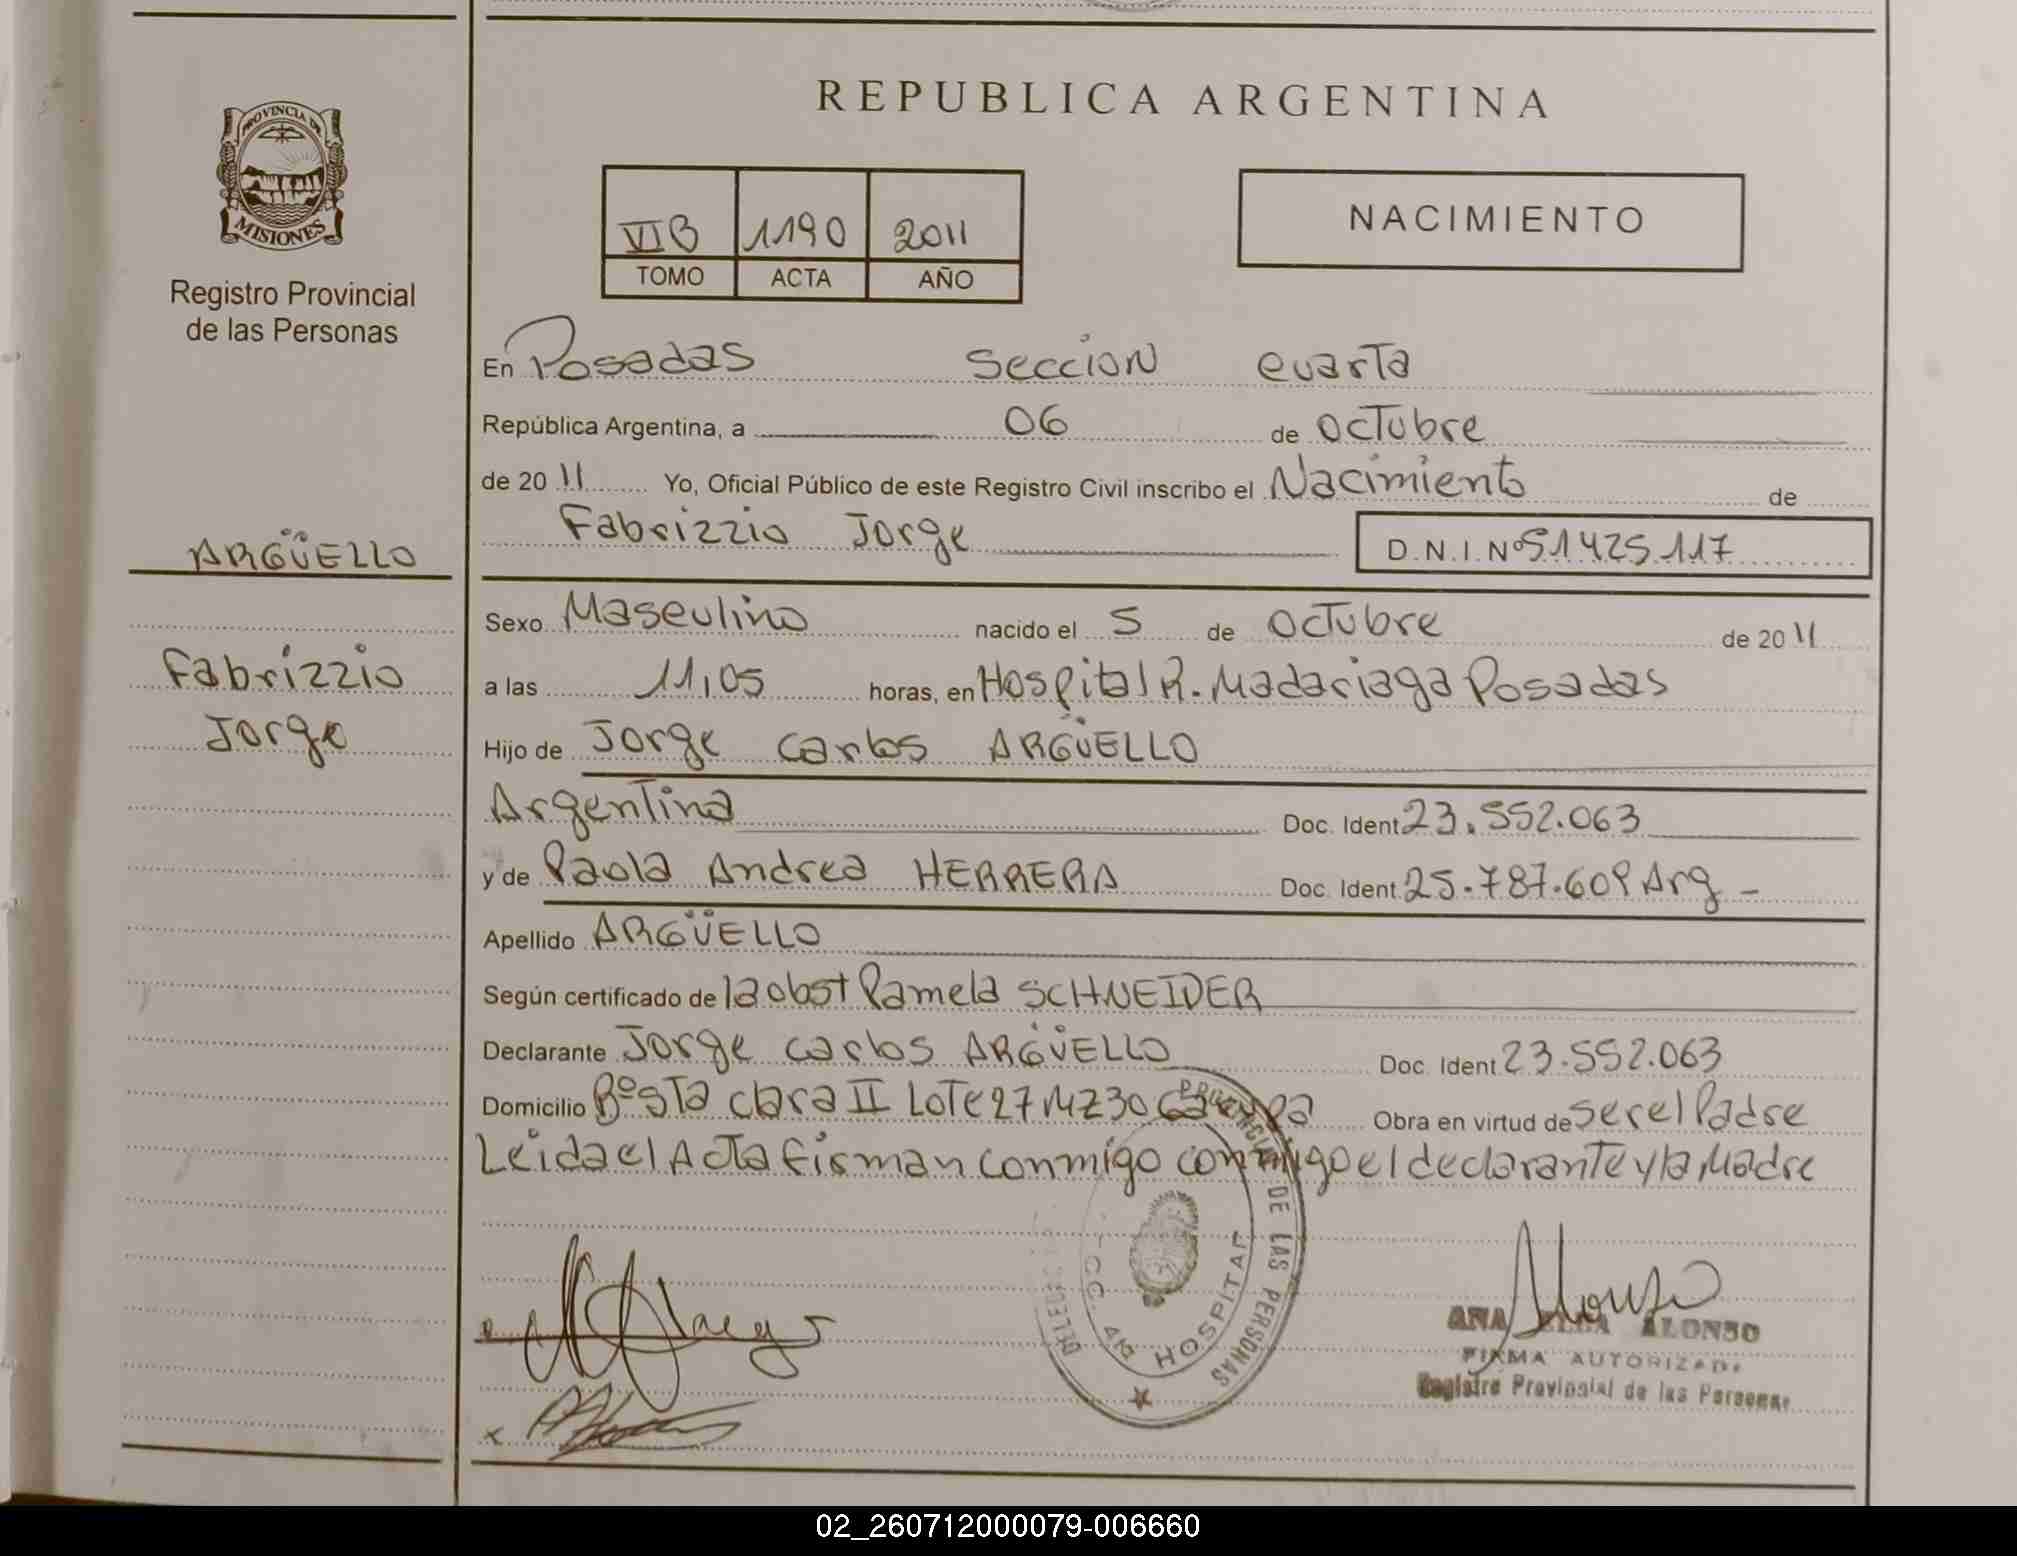 REPUBLICA ARGENTINA
PROVINCIA DE
MISIONES
Registro Provincial
de las Personas
VIB 1190 2011
TOMO ACTA AÑO
NACIMIENTO
En Posadas Seccion cuarta
República Argentina, a 06 de Octubre
de 2011 Yo, Oficial Público de este Registro Civil inscribo el Nacimiento de
Fabrizzio Jorge D.N.I. Nº 51425117
ARGÜELLO
Fabrizzio
Jorge
Sexo Masculino nacido el 5 de Octubre de 2011
a las 11,05 horas, en Hospital R. Madariaga Posadas
Hijo de Jorge Carlos ARGÜELLO
Argentina Doc. Ident. 23.552.063
y de Paola Andrea HERRERA Doc. Ident. 25.787.609 Arg -
Apellido ARGÜELLO
Según certificado de la obst Pamela SCHNEIDER
Declarante Jorge Carlos ARGÜELLO Doc. Ident. 23.552.063
Domicilio Bº Sta Clara II Lote 27 MZ 30 Garupa Obra en virtud de ser el Padre
Leida el Acta firman conmigo conmigo el declarante y la Madre
DE LAS PERSONAS
HOSPITAL
ANA ALONSO
FIRMA AUTORIZADA
Registro Provincial de las Personas
02_260712000079-006660